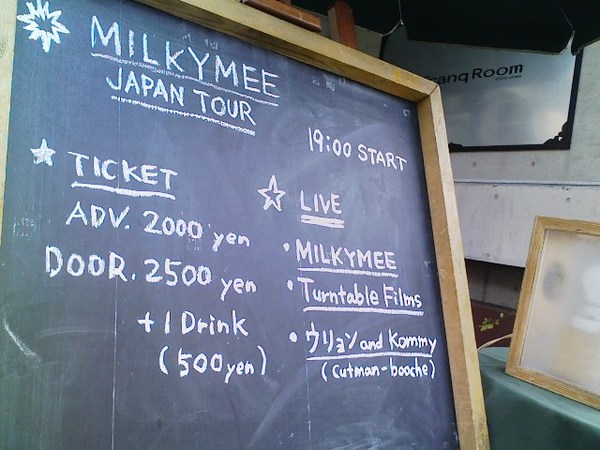 MILKYMEE
JAPAN TOUR
19:00 START
TICKET
ADV. 2000 yen
DOOR. 2500 yen
+1 Drink
(500yen)
LIVE
・MILKYMEE
・Turntable Films
・ウリョン and Kommy
(cutman-booche)
Room